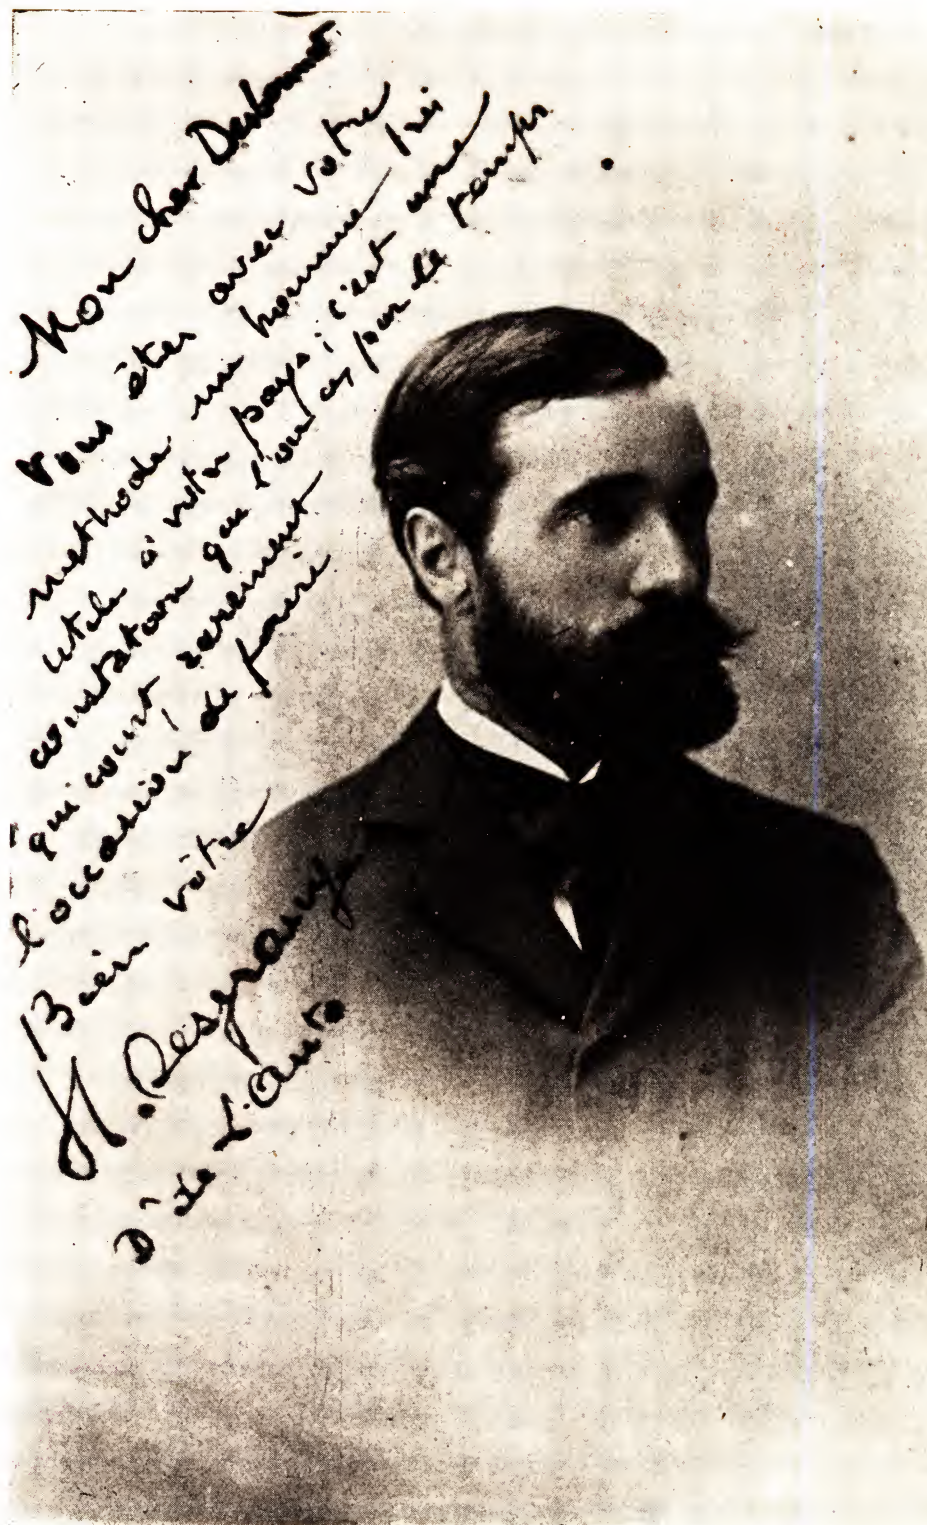 Mon cher Desbonnet
Vous êtes avec votre
methode un homme très
utile à notre pays ; c'est une
constatation que l'on a, par le temps
qui court, rarement
l'occasion de faire.
Bien vôtre
H. Desgrange
D' de L'Auto